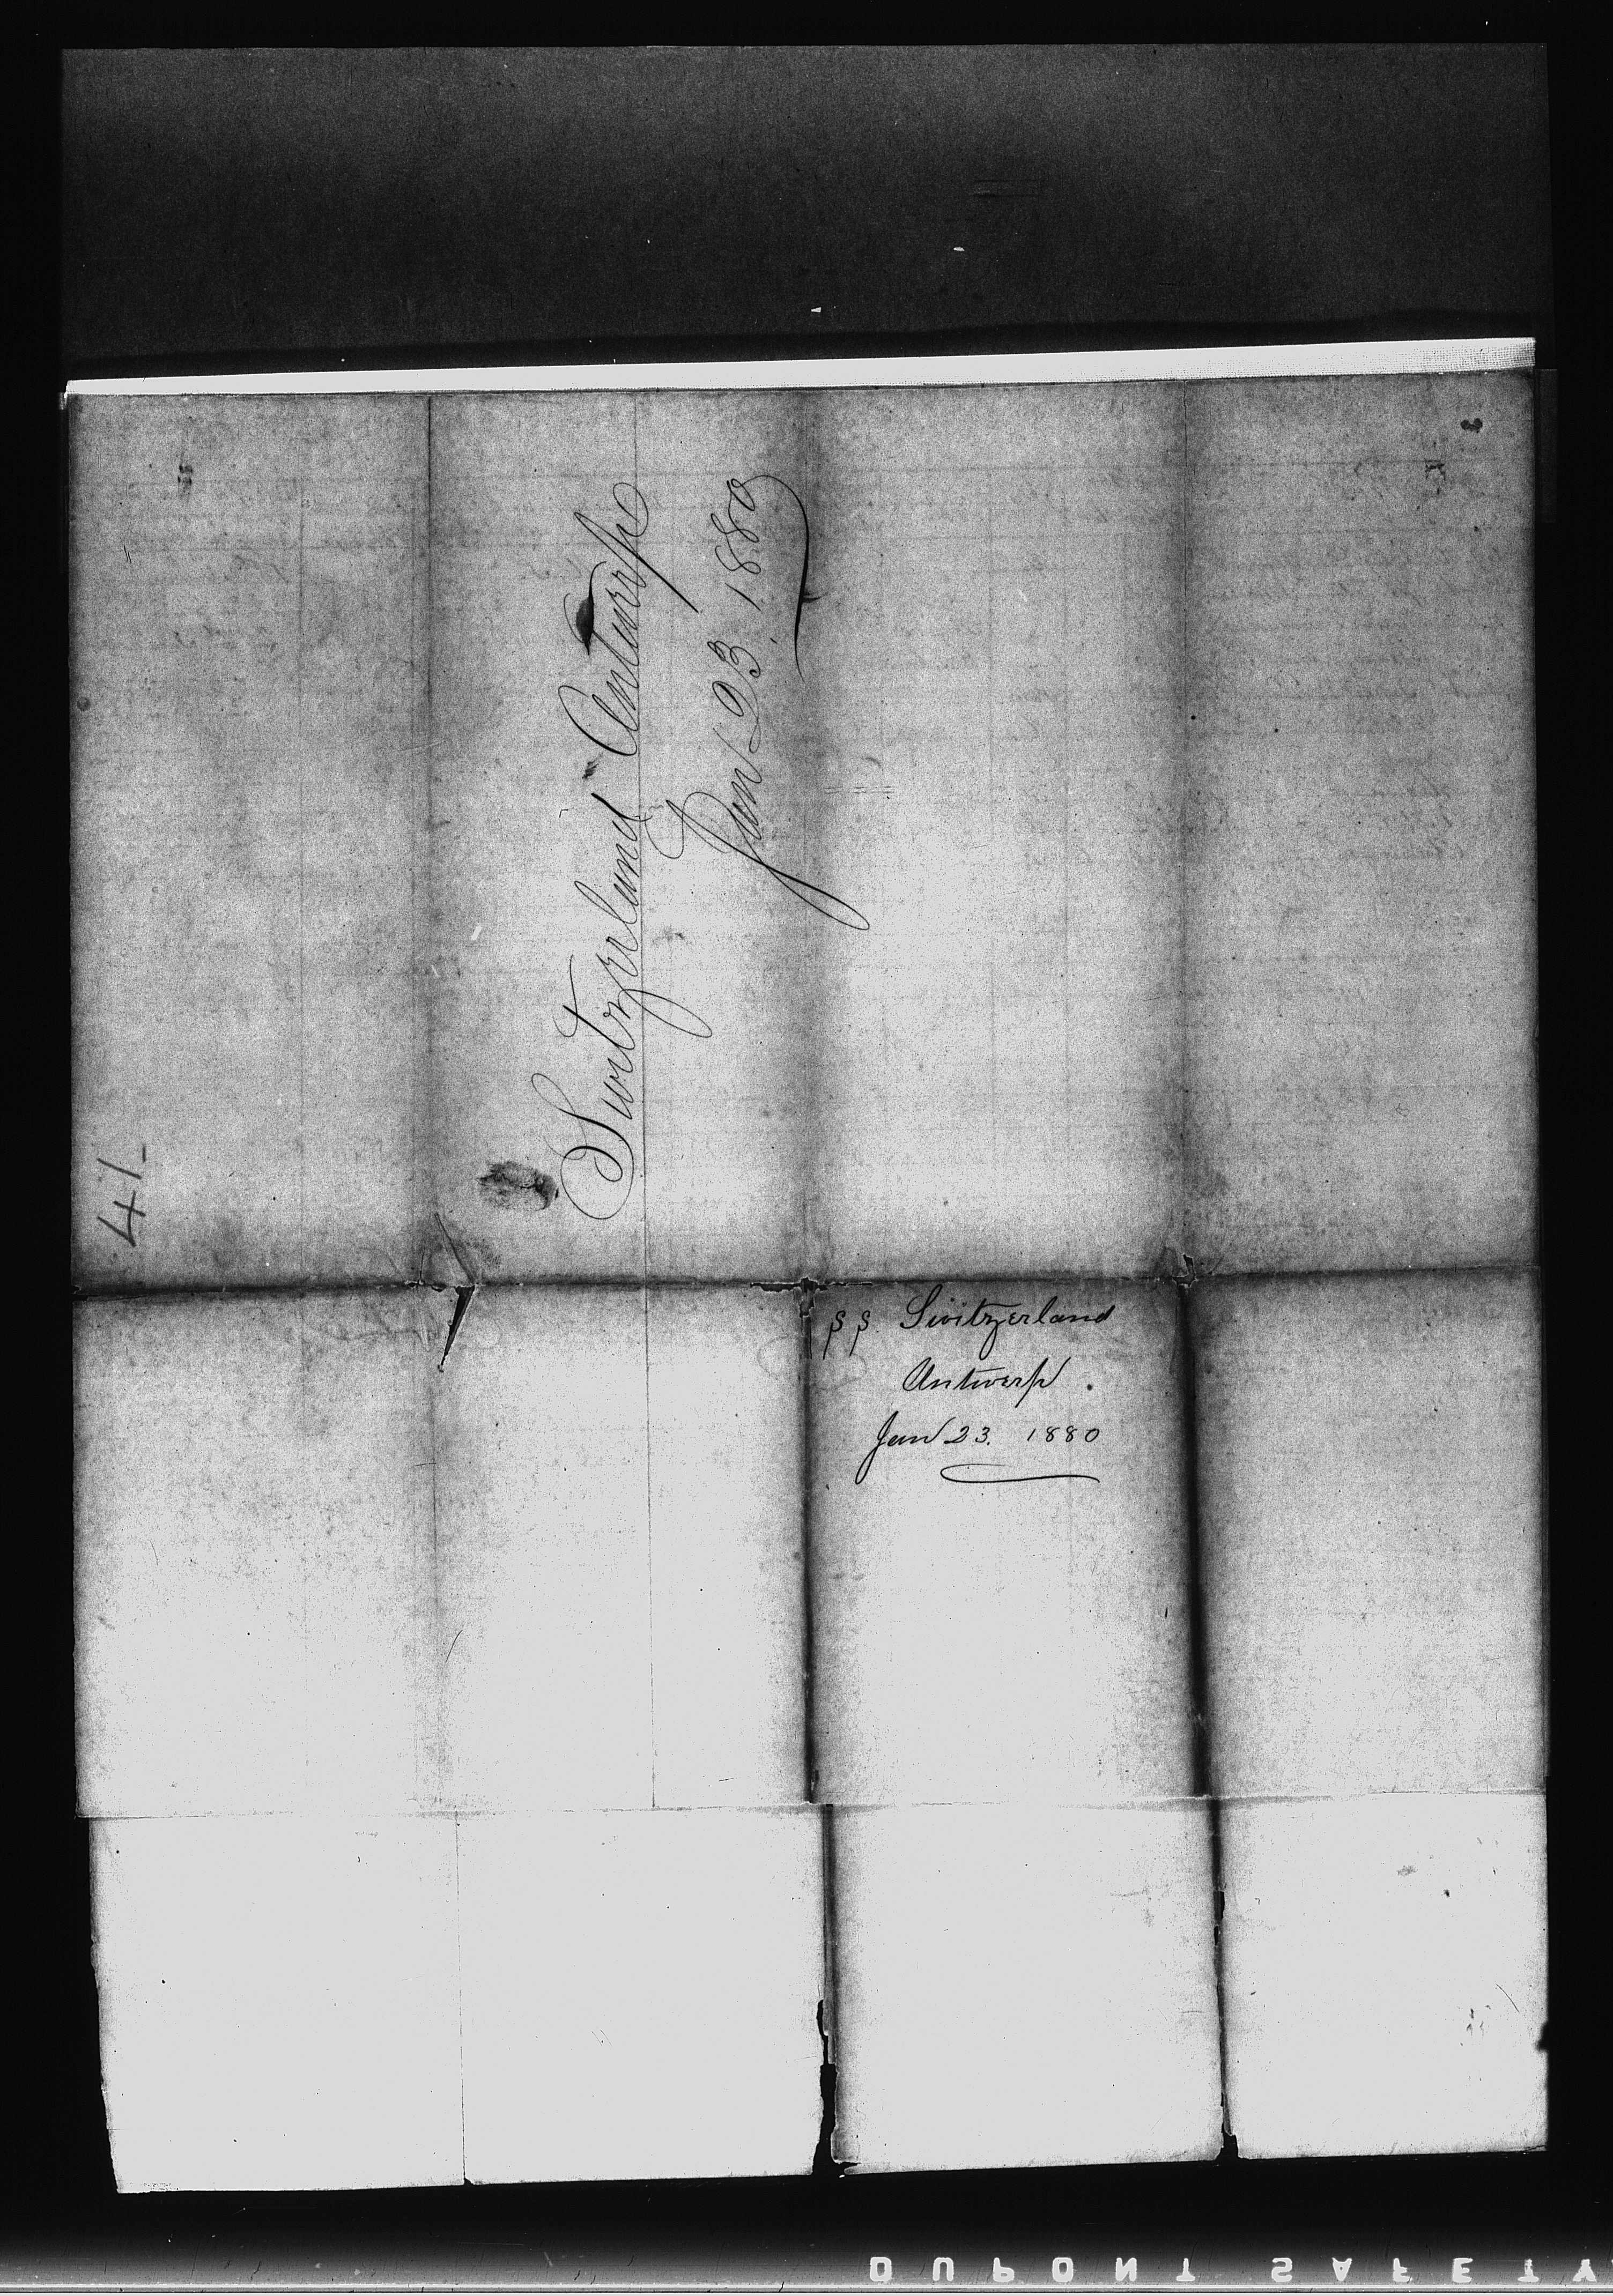 Switzerland - Antwerp
Jan 23. 1880
41-
SS. Switzerland
Antwerp.
Jan 23. 1880
DUPONT SAFETY